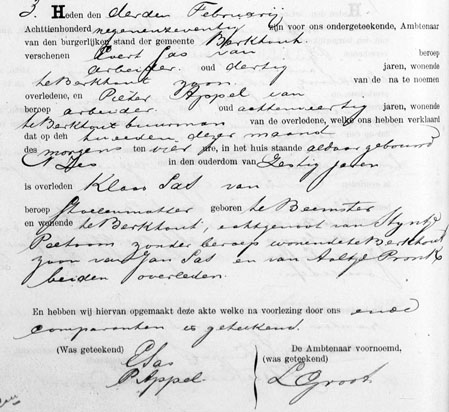 3. Heden den derden Februarij
Achttienhonderd negenenzeventig zijn voor ons ondergeteekende, Ambtenaar
van den burgerlijken stand der gemeente Berkhout.
verschenen Evert Sas van beroep
arbeider. oud dertig jaren, wonende
te Berkhout zoon van de na te noemen
overledene, en Pieter Appel van
beroep arbeider. oud achtenveertig jaren, wonende
te Berkhout buurman van de overledene, welke ons hebben verklaard
dat op den tweeden dezer maand
des morgens ten vier ure, in het huis staande aldaar gebuurd
N in den ouderdom van Zestig jaren
is overleden Klaas Sas van
beroep Stoelenmatter geboren te Beemster
en wonende te Berkhout, echtgenoot van Trijntje
zonder beroep wonende te Berkhout
zoon van Jan Sas en van Aaltje Pronk
beiden overleden.
En hebben wij hiervan opgemaakt deze akte welke na voorlezing door ons ende
comparanten is geteekend.
(Was geteekend) De Ambtenaar voornoemd,
(was geteekend)
E Sas
P Appel L Groot.